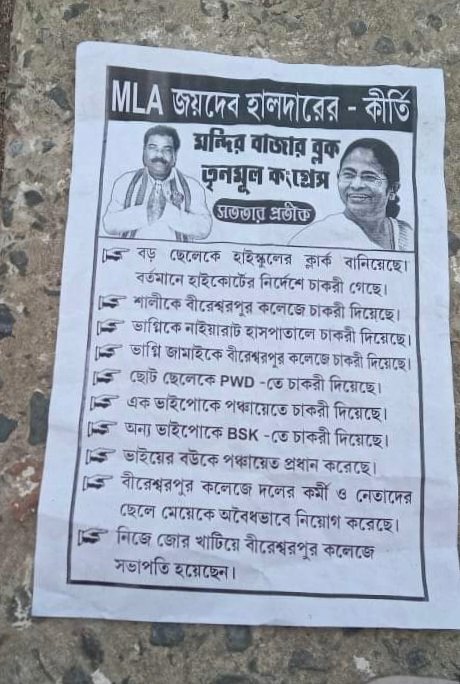 MLA জয়দেব হালদারের - কীর্তি
মন্দির বাজার ব্লক
তৃনমূল কংগ্রেস
সততার প্রতীক
বড় ছেলেকে হাইস্কুলের ক্লার্ক বানিয়েছে।
বর্তমানে হাইকোর্টের নির্দেশে চাকরী গেছে।
শালীকে বীরেশ্বরপুর কলেজে চাকরী দিয়েছে।
ভাগ্নিকে নাইয়ারাট হাসপাতালে চাকরী দিয়েছে।
ভাগ্নি জামাইকে বীরেশ্বরপুর কলেজে চাকরী দিয়েছে।
ছোট ছেলেকে PWD -তে চাকরী দিয়েছে।
এক ভাইপোকে পঞ্চায়েতে চাকরী দিয়েছে।
অন্য ভাইপোকে BSK -তে চাকরী দিয়েছে।
ভাইয়ের বউকে পঞ্চায়েত প্রধান করেছে।
বীরেশ্বরপুর কলেজে দলের কর্মী ও নেতাদের
ছেলে মেয়েকে অবৈধভাবে নিয়োগ করেছে।
নিজে জোর খাটিয়ে বীরেশ্বরপুর কলেজে
সভাপতি হয়েছেন।